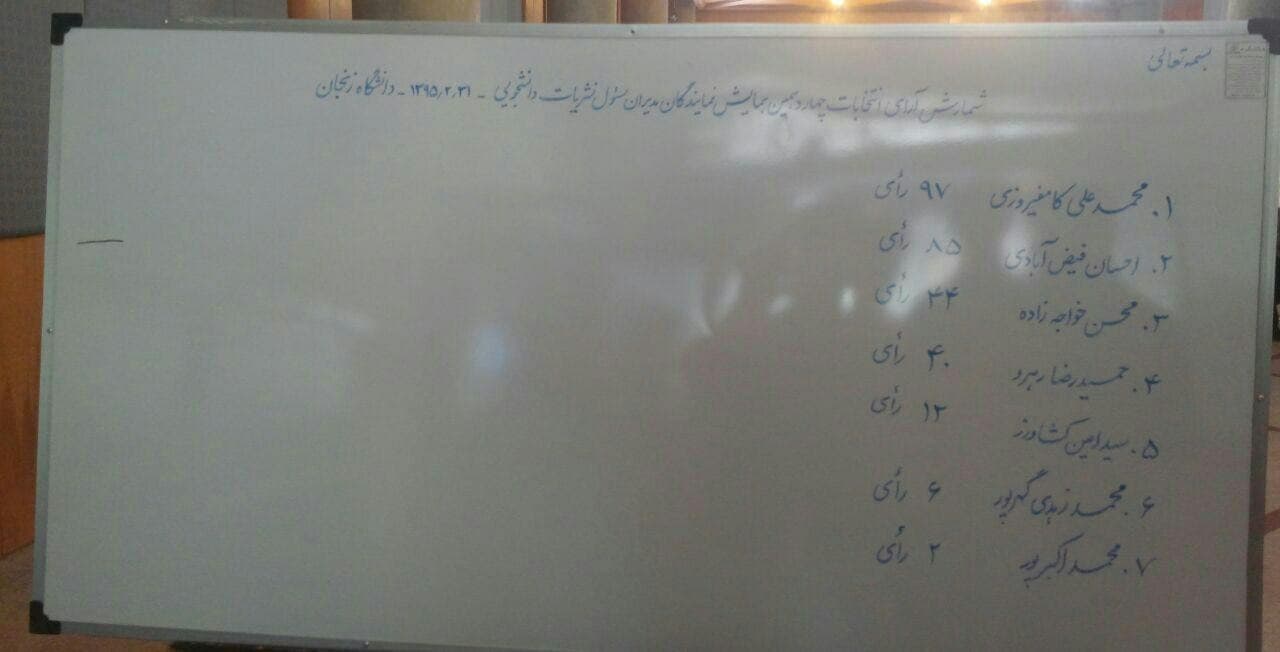 بسمه تعالی
شمارش آرای انتخابات چهاردهمین همایش نمایندگان مدیران مسئول نشریات دانشجویی - ۱۳۹۵/۲/۳۱ - دانشگاه زنجان
۱. محمد علی کامفیروزی ۹۷ رأی
۲. احسان فیض آبادی ۸۵ رأی
۳. محسن خواجه زاده ۴۴ رأی
۴. حمیدرضا رهرو ۴۰ رأی
۵. سید امین کشاورز ۱۲ رأی
۶. محمد زیدی گهرپور ۶ رأی
۷. محمد اکبرپور ۲ رأی